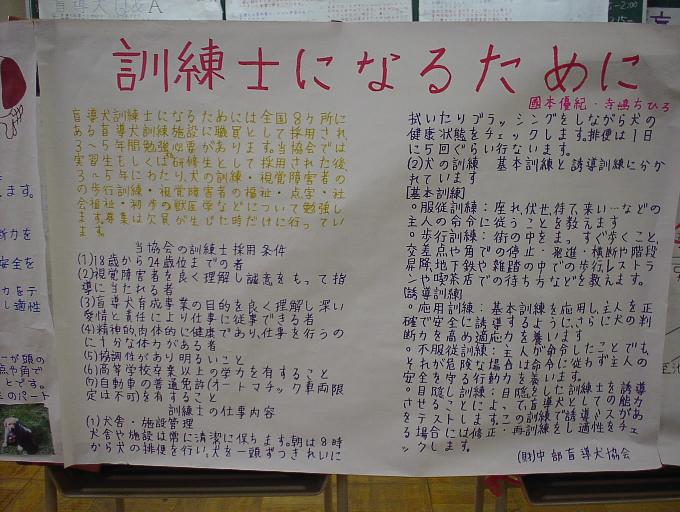 盲導犬はQ&A
訓練士になるために
國本優紀・寺嶋ちひろ
盲導犬訓練士になるためには全国8ヶ所に
ある盲導犬訓練施設に職員として採用され
3～5年間勉強必要があります。当協会では
実習生もしくは研修生として採用された後
3～5年にわたり、犬の訓練・視覚障害者の
の歩行訓練・視覚障害者の福祉・点字・社
会福祉・初歩の獣医学などについて勉強し
ます。募集は欠員が生じた時だけに行ってい
ます
当協会の訓練士採用条件
(1)18歳から24歳位までの者
(2)視覚障害者を良く理解し誠意をもって指
導に当たれる者
(3)盲導犬育成事業の目的を良く理解し深い
愛情と責任により仕事に従事できる者
(4)精神的、肉体的に健康であり、仕事を行うの
に十分な体力がある者
(5)協調性があり明るいこと
(6)高等学校卒業以上の学力を有すること
(7)自動車の普通免許(オートマチック車両限
定は不可)を有すること
訓練士の仕事内容
(1)犬舎・施設管理
犬舎や施設は常に清潔に保ちます。朝は8時
から犬の排便を行い、犬を一頭ずつきれいに
拭いたりブラッシングをしながら犬の
健康状態をチェックします。排便は1日
に5回ぐらい行ないます。
(2)犬の訓練 基本訓練と誘導訓練に分か
れています
[基本訓練]
。服従訓練:座れ、伏せ、待て、来い…などの
主人の命令に従うことを教えます
。歩行訓練:街の中をまっすぐ歩くこと、
交差点や角での停止・発進・横断や階段
昇降、地下鉄や雑踏の中での歩行、レストラ
ンや喫茶店での待ち方などを教えます。
[誘導訓練]
。応用訓練:基本訓練を応用し、主人を正
確で安全に誘導するように、さらに犬の判
断力を高め適応力を養います
。不服従訓練:主人が命令したことでも、
それが危険な場合は命令に従わず主人の
安全を守る行動力を養います。
。目隠し訓練:目隠しをした訓練士を誘導
させることによって、盲導犬としての能力
をテストします。この訓練で誘導ミスがあ
る場合には修正・再訓練をし適性をチェ
ックします。
(財)中部盲導犬協会